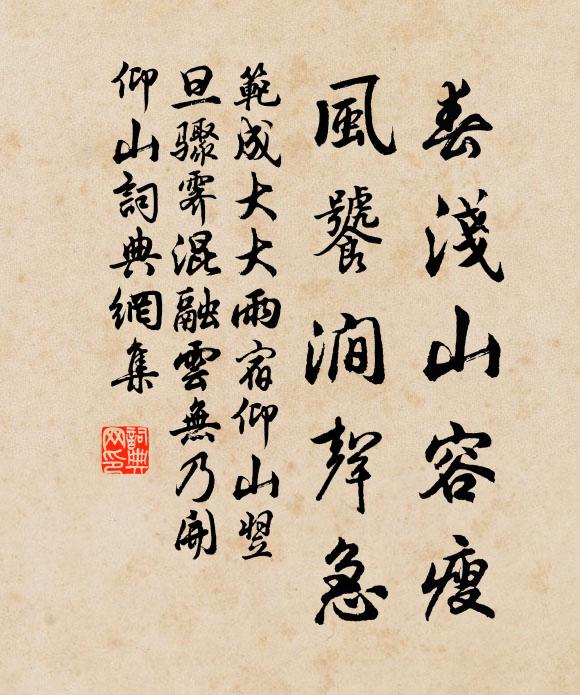 春淺山容瘦
風饕澗聲急
範成大大雨宿仰山翌
旦驟霽混融雲無乃開
仰山詞典網集
詞典
网印